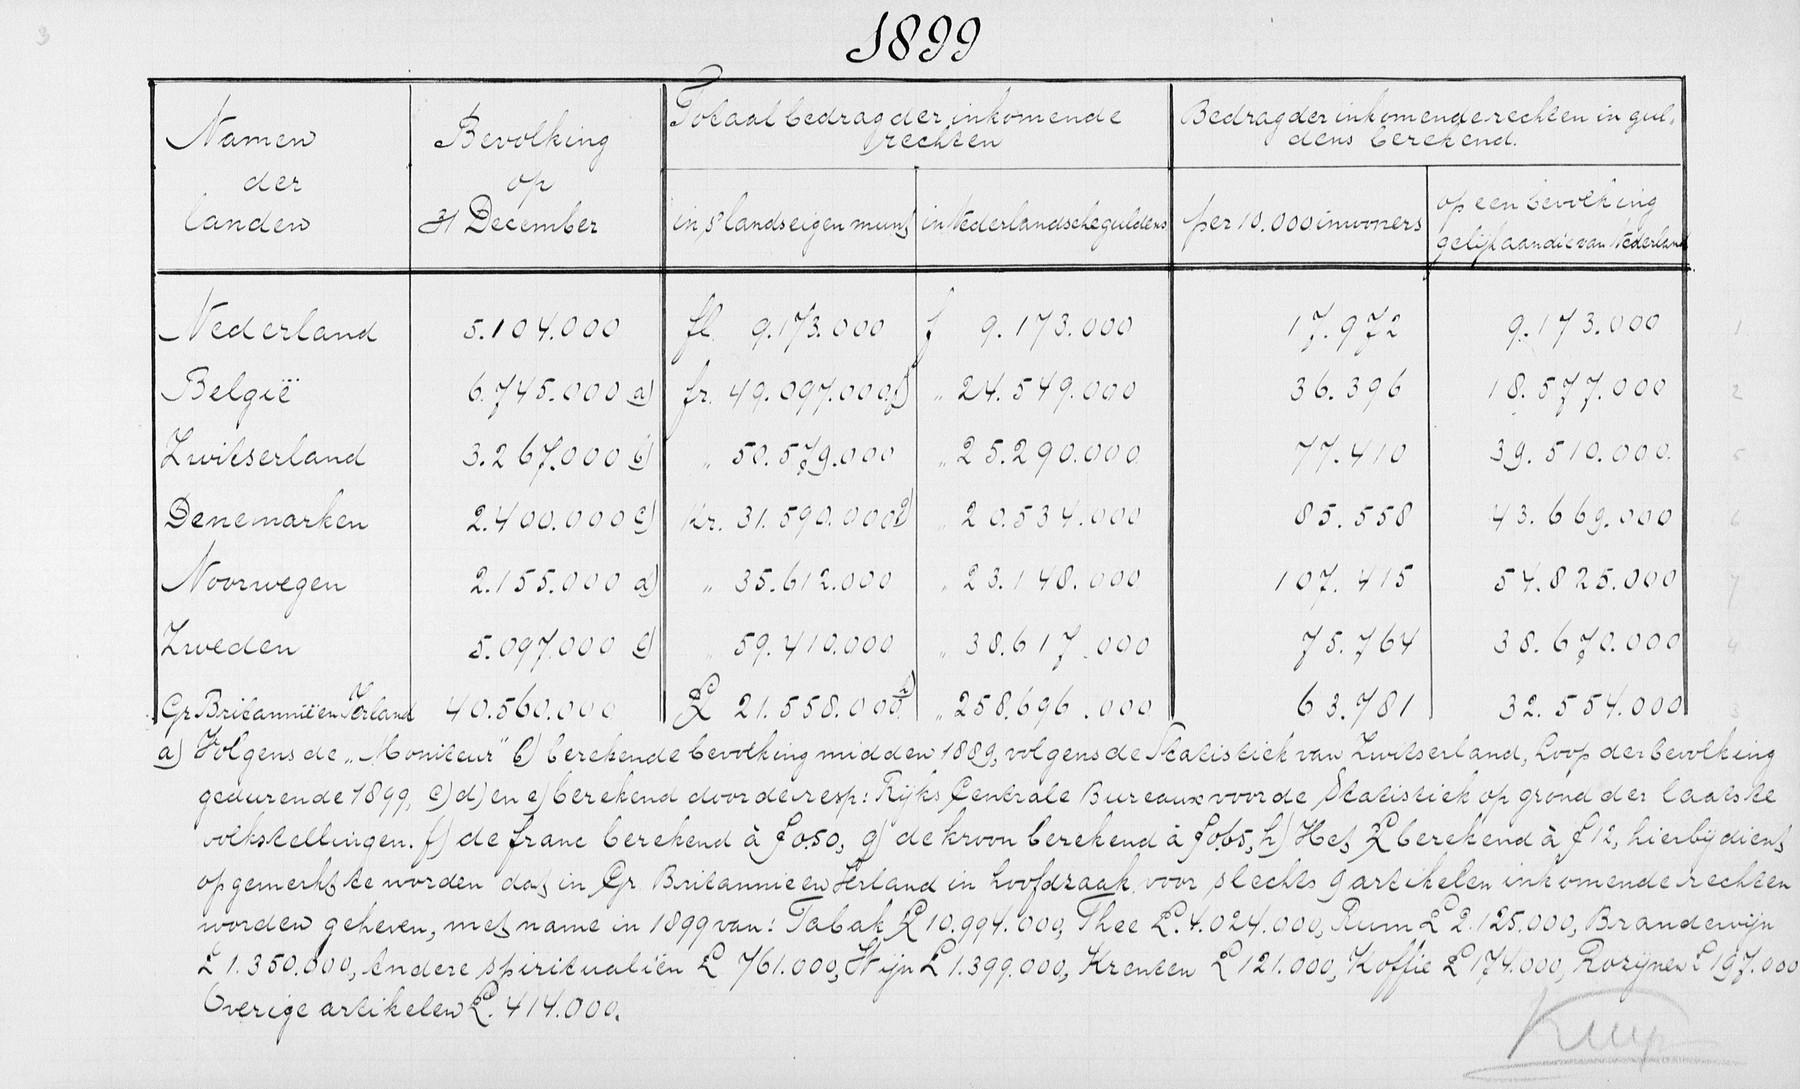 3
1899
Namen der landen | Bevolking op 31 December | Totaal bedrag der inkomende rechten | Bedrag der inkomende rechten in guldens berekend.
in 's lands eigen munt | in Nederlandsche guldens | per 10.000 inwoners | op een bevolking gelijk aan die van Nederland
Nederland 5.104.000 fl 9.173.000 f 9.173.000 17.972 9.173.000 1
België 6.745.000 a) fr. 49.097.000 f) „ 24.549.000 36.396 18.577.000 2
Zwitserland 3.267.000 b) „ 50.579.000 „ 25.290.000 77.410 39.510.000 5
Denemarken 2.400.000 c) Kr. 31.590.000 g) „ 20.534.000 85.558 43.669.000 6
Noorwegen 2.155.000 d) „ 35.612.000 „ 23.148.000 107.415 54.825.000 7
Zweden 5.097.000 e) „ 59.410.000 „ 38.617.000 75.764 38.670.000 4
Gr Britannië en Ierland 40.560.000 £ 21.558.000 h) „ 258.696.000 63.781 32.554.000 3
a) Volgens de „Moniteur" b) berekende bevolking midden 1889, volgens de Statistiek van Zwitserland, Loop der bevolking
gedurende 1899, c) d) en e) berekend door de resp: Rijks Centrale Bureaux voor de Statistiek op grond der laatste
volkstellingen. f) de franc berekend à f 0.50, g) de kroon berekend à f 0.65, h) Het £ berekend à f 12, hierbij dient
opgemerkt te worden dat in Gr. Britannie en Ierland in hoofdzaak voor slechts 9 artikelen inkomende rechten
worden geheven, met name in 1899 van: Tabak £ 10.994.000, Thee £. 4.024.000, Rum £ 2.125.000, Brandewijn
£ 1.350.000, Andere spiritualiën £ 761.000, Wijn £ 1.399.000, Krenten £ 121.000, Koffie £ 174.000, Rozijnen £ 197.000
Overige artikelen £. 414.000.